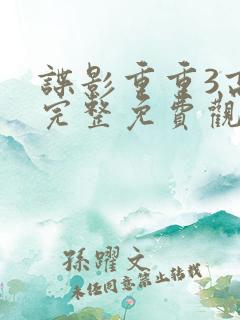 諜影重重3,高
完整免費觀
孫躍文
未經同意禁止轉載